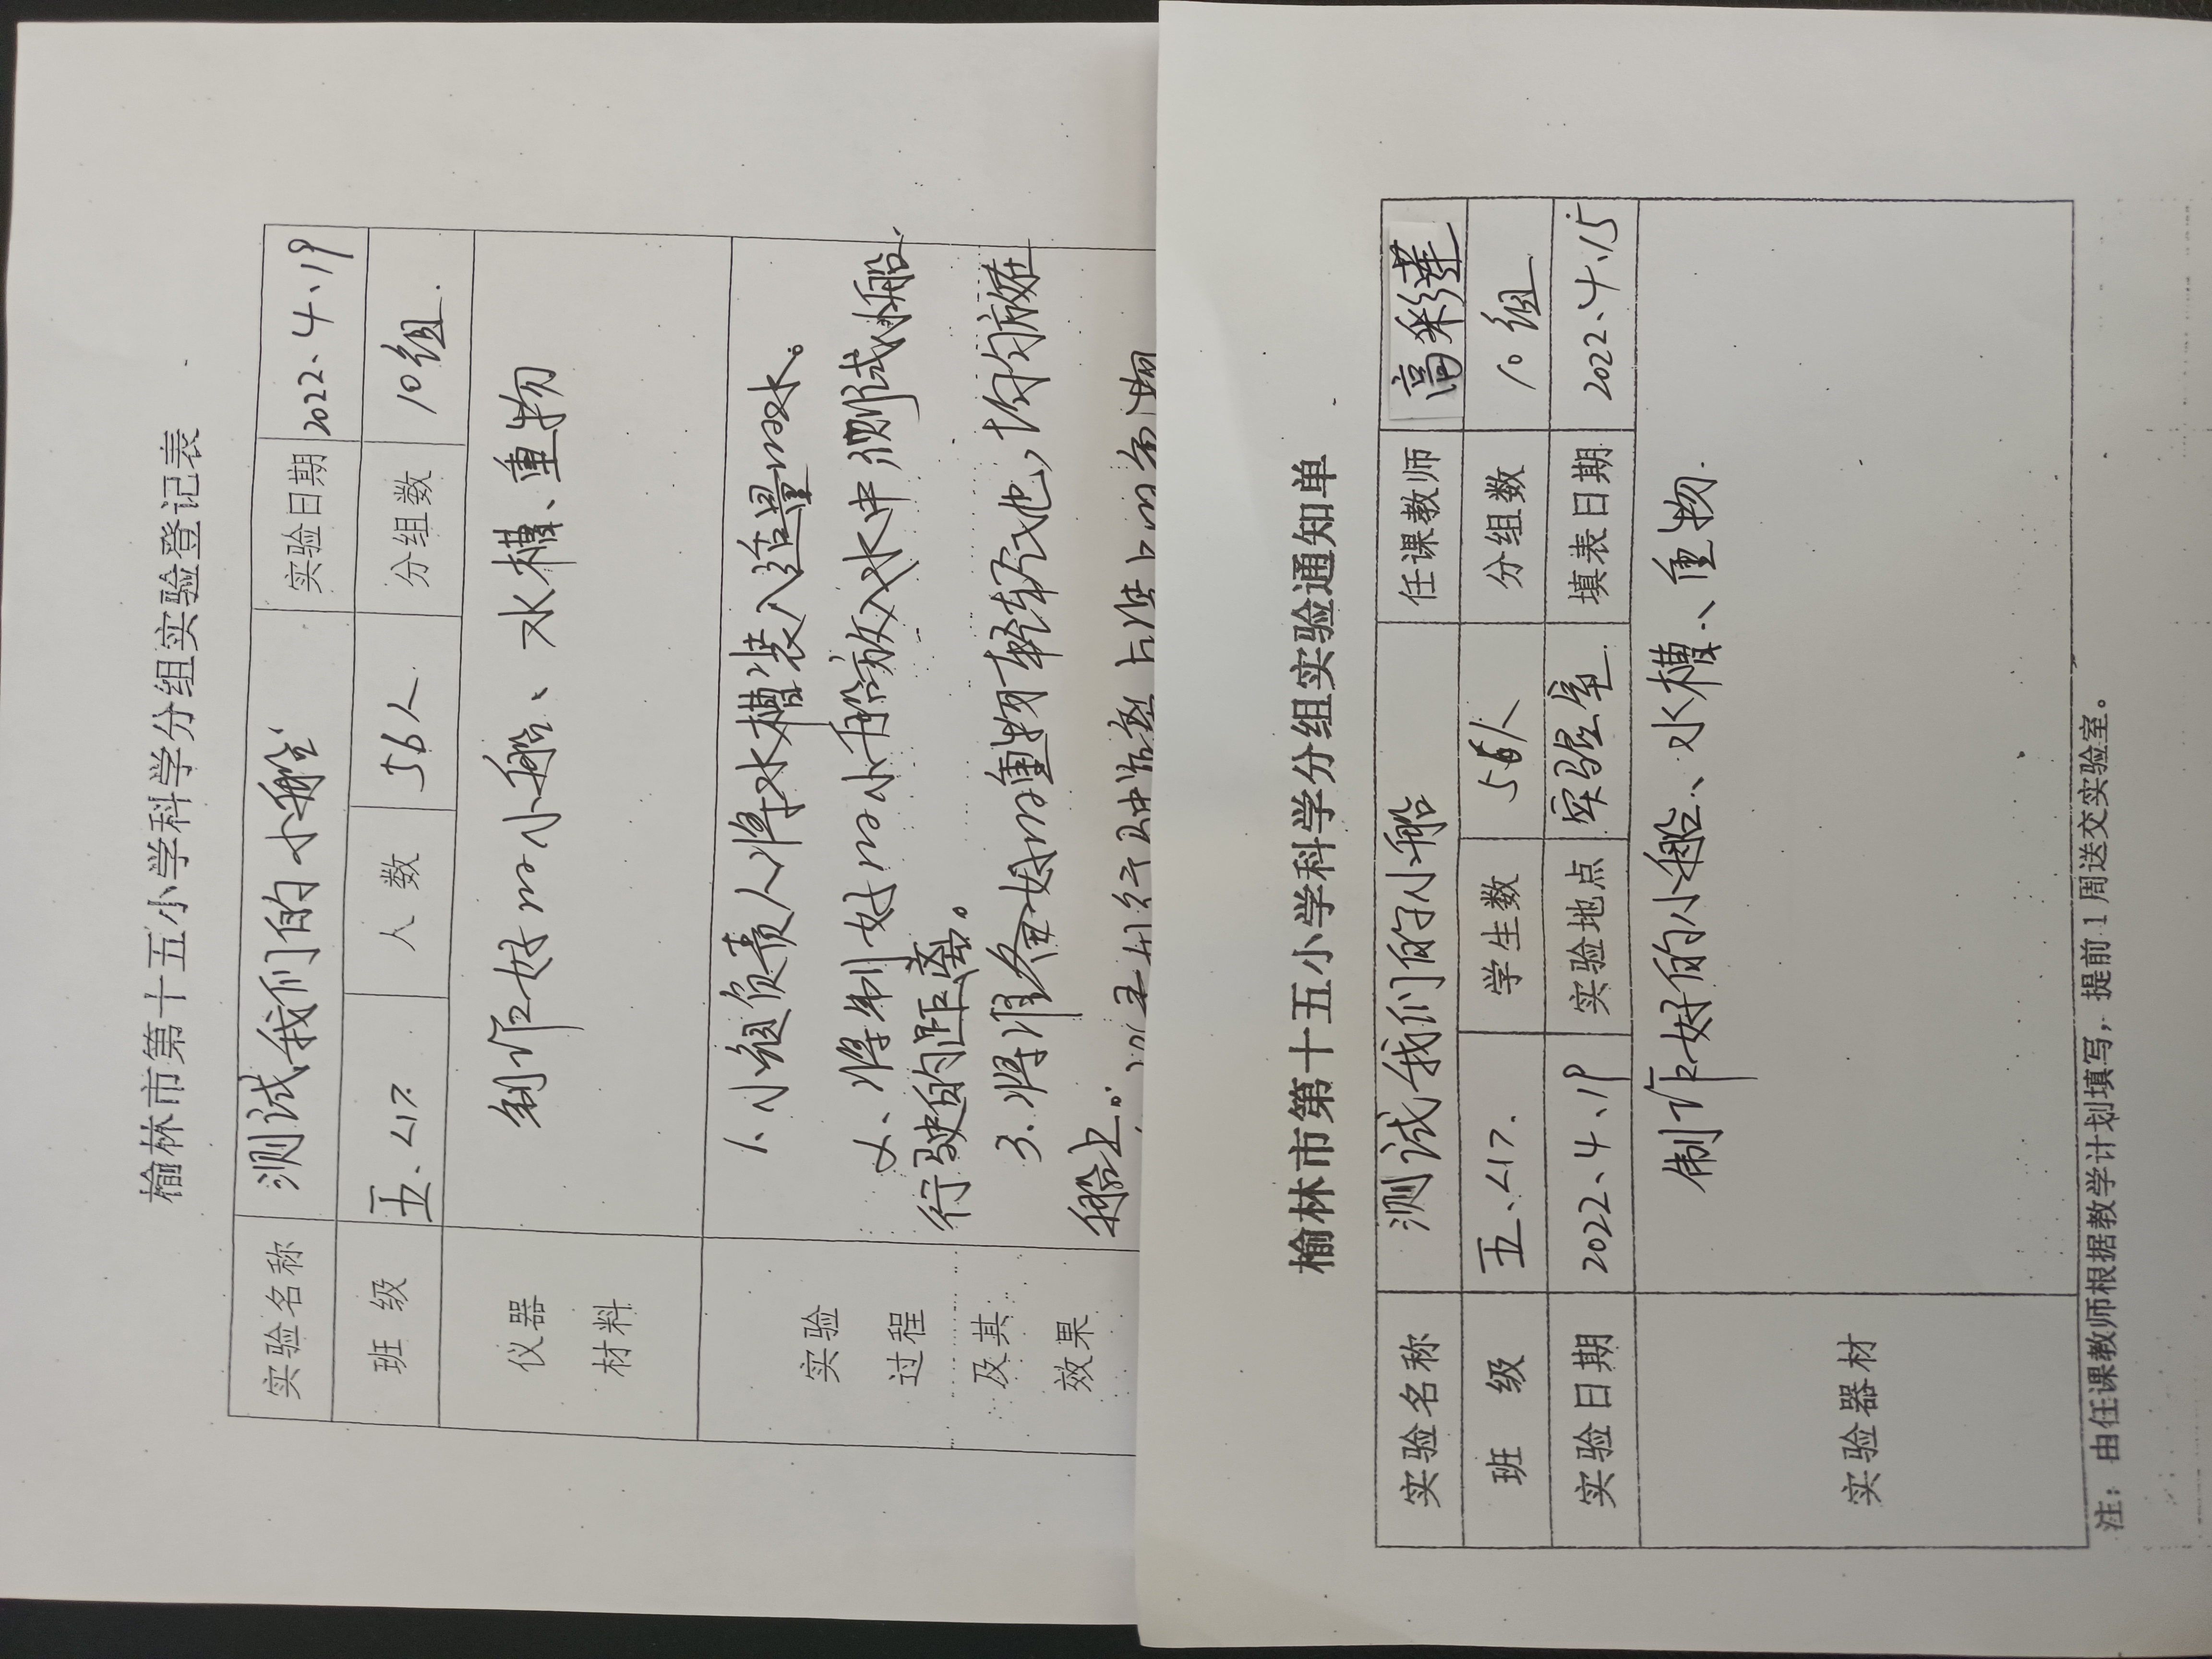 榆林市第十五小学科学分组实验登记表
实验名称 测试我们的小船 实验日期 2022、4、19
班 级 五、<1> 人 数 56人 分组数 10组.
仪器 制作好的小船、水槽、重物
材料
实验 1、小组负责人将水槽装入适量的水。
过程 2、将制好的小船放入水中测试小船
行驶的距离。
及其 3、将准备好的重物轻轻地,均匀放在
效果 船上。
榆林市第十五小学科学分组实验通知单
实验名称 测试我们的小船 任课教师 高彩莲
班 级 五、<1>. 学生数 56人 分组数 10组
实验日期 2022、4、19 实验地点 实验室. 填表日期 2022、4、15
实验器材 制作好的小船、水槽、重物.
注：由任课教师根据教学计划填写，提前1周送交实验室。